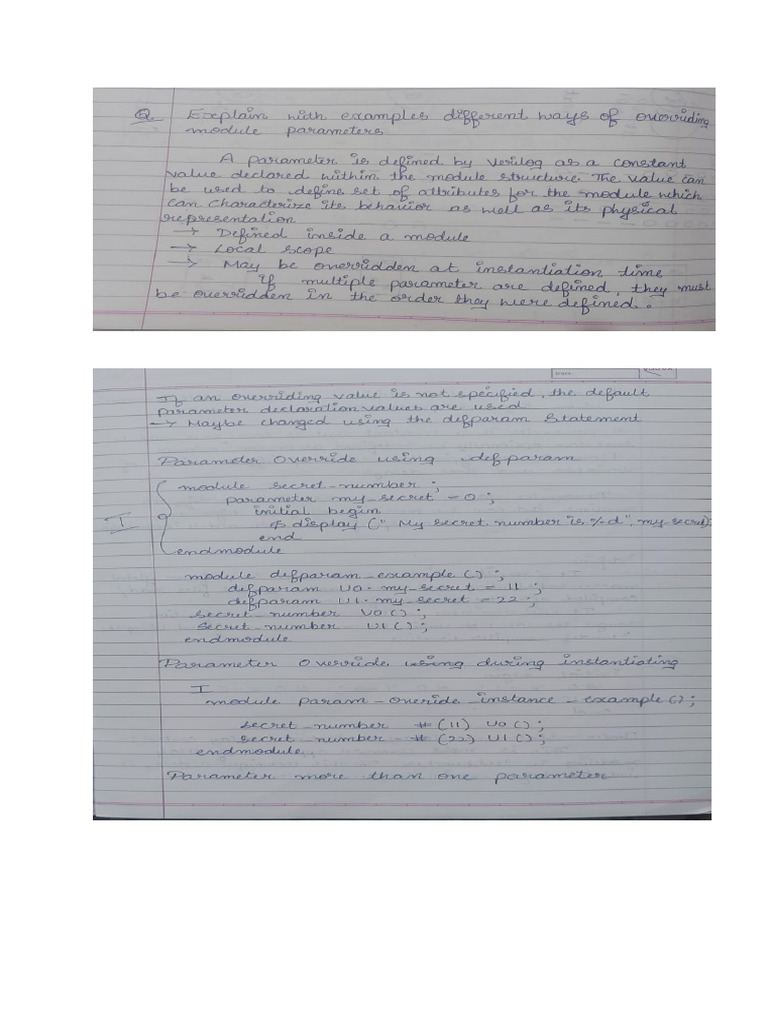 Q Explain with examples different ways of overriding
module parameters
A parameter is defined by Verilog as a constant
value declared within the module structure. The value can
be used to define set of attributes for the module which
can characterize its behavior as well as its physical
representation
→ Defined inside a module
→ Local scope
→ May be overridden at instantiation time
If multiple parameter are defined, they must
be overridden in the order they were defined.
If an overriding value is not specified, the default
parameter declaration values are used
→ Maybe changed using the defparam statement
Parameter Override using defparam
module secret_number ;
parameter my_secret = 0 ;
initial begin
$ display (" My secret number is %d", my_secret);
end
endmodule
I
module defparam_example () ;
defparam U0. my_secret = 11 ;
defparam U1. my_secret = 22 ;
secret_number U0 () ;
secret_number U1 () ;
endmodule
Parameter Override using during instantiating
I
module param_overide_instance_example () ;
secret_number # (11) U0 () ;
secret_number # (22) U1 () ;
endmodule.
Parameter more than one parameter